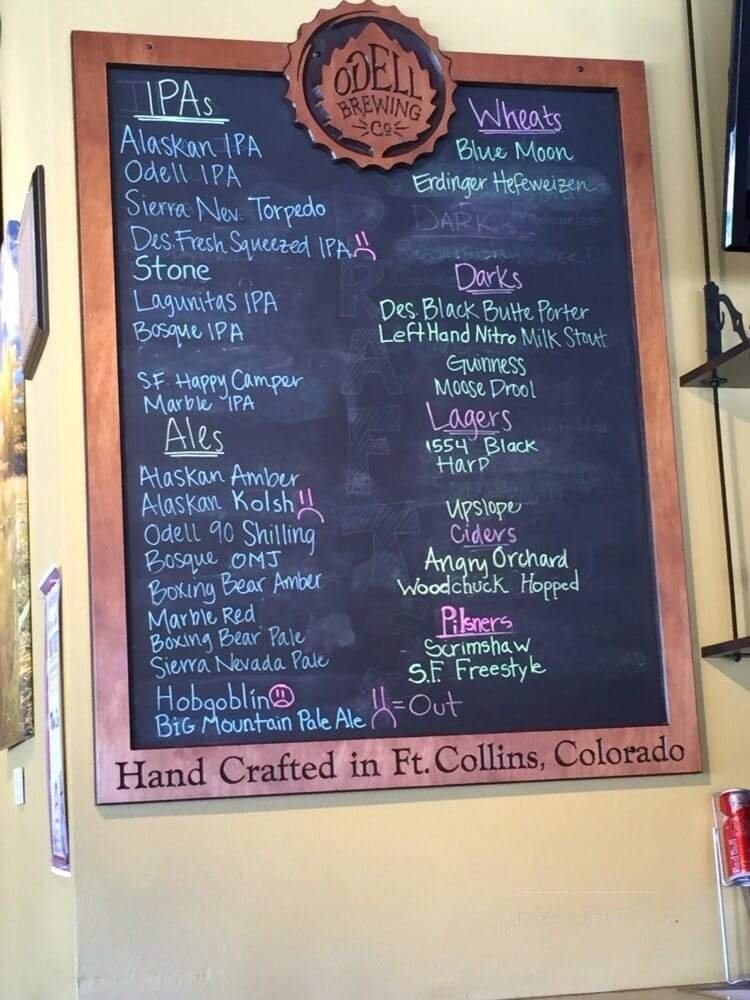 ODELL
BREWING
CO
IPAs
Alaskan IPA
Odell IPA
Sierra Nev. Torpedo
Des. Fresh Squeezed IPA
Stone
Lagunitas IPA
Bosque IPA
S.F. Happy Camper
Marble IPA
Ales
Alaskan Amber
Alaskan Kolsh
Odell 90 Shilling
Bosque OMJ
Boxing Bear Amber
Marble Red
Boxing Bear Pale
Sierra Nevada Pale
Hobgoblin
BiG Mountain Pale Ale
=Out
DRAFTS
Wheats
Blue Moon
Erdinger Hefeweizen
DARK
Darks
Des. Black Butte Porter
Left Hand Nitro Milk Stout
Guinness
Moose Drool
Lagers
1554 Black
Harp
Upslope
Ciders
Angry Orchard
Woodchuck Hopped
Pilsners
Scrimshaw
S.F. Freestyle
Hand Crafted in Ft. Collins, Colorado
Red Bull